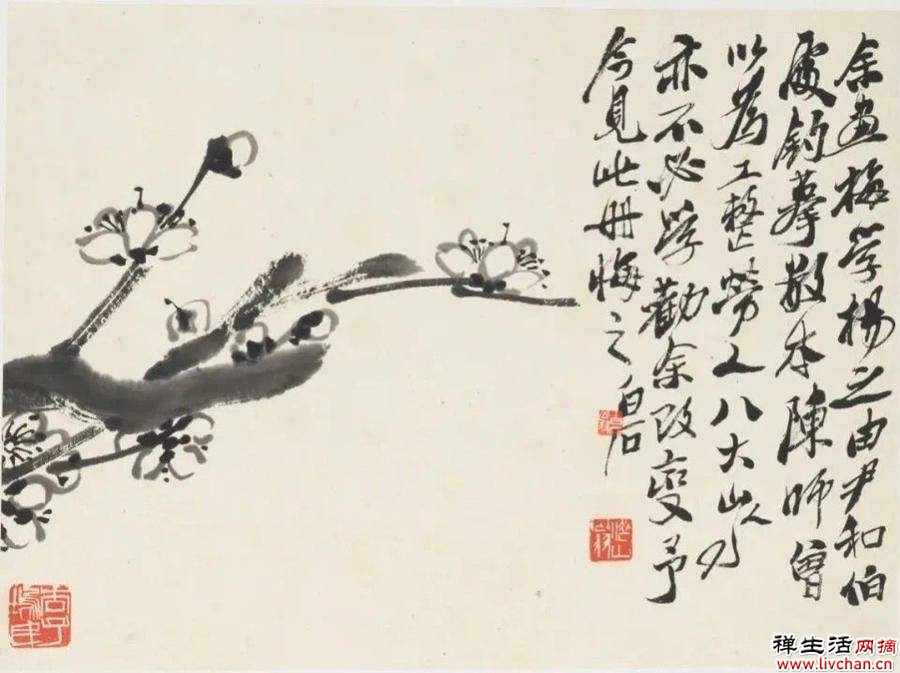 余画梅学杨之由尹和伯
处钩摹数本陳师曾
以为工整劳人八大山人
亦不必学勸余改变予
今見此册悔之白石
禅生活网摘
www.livchan.cn